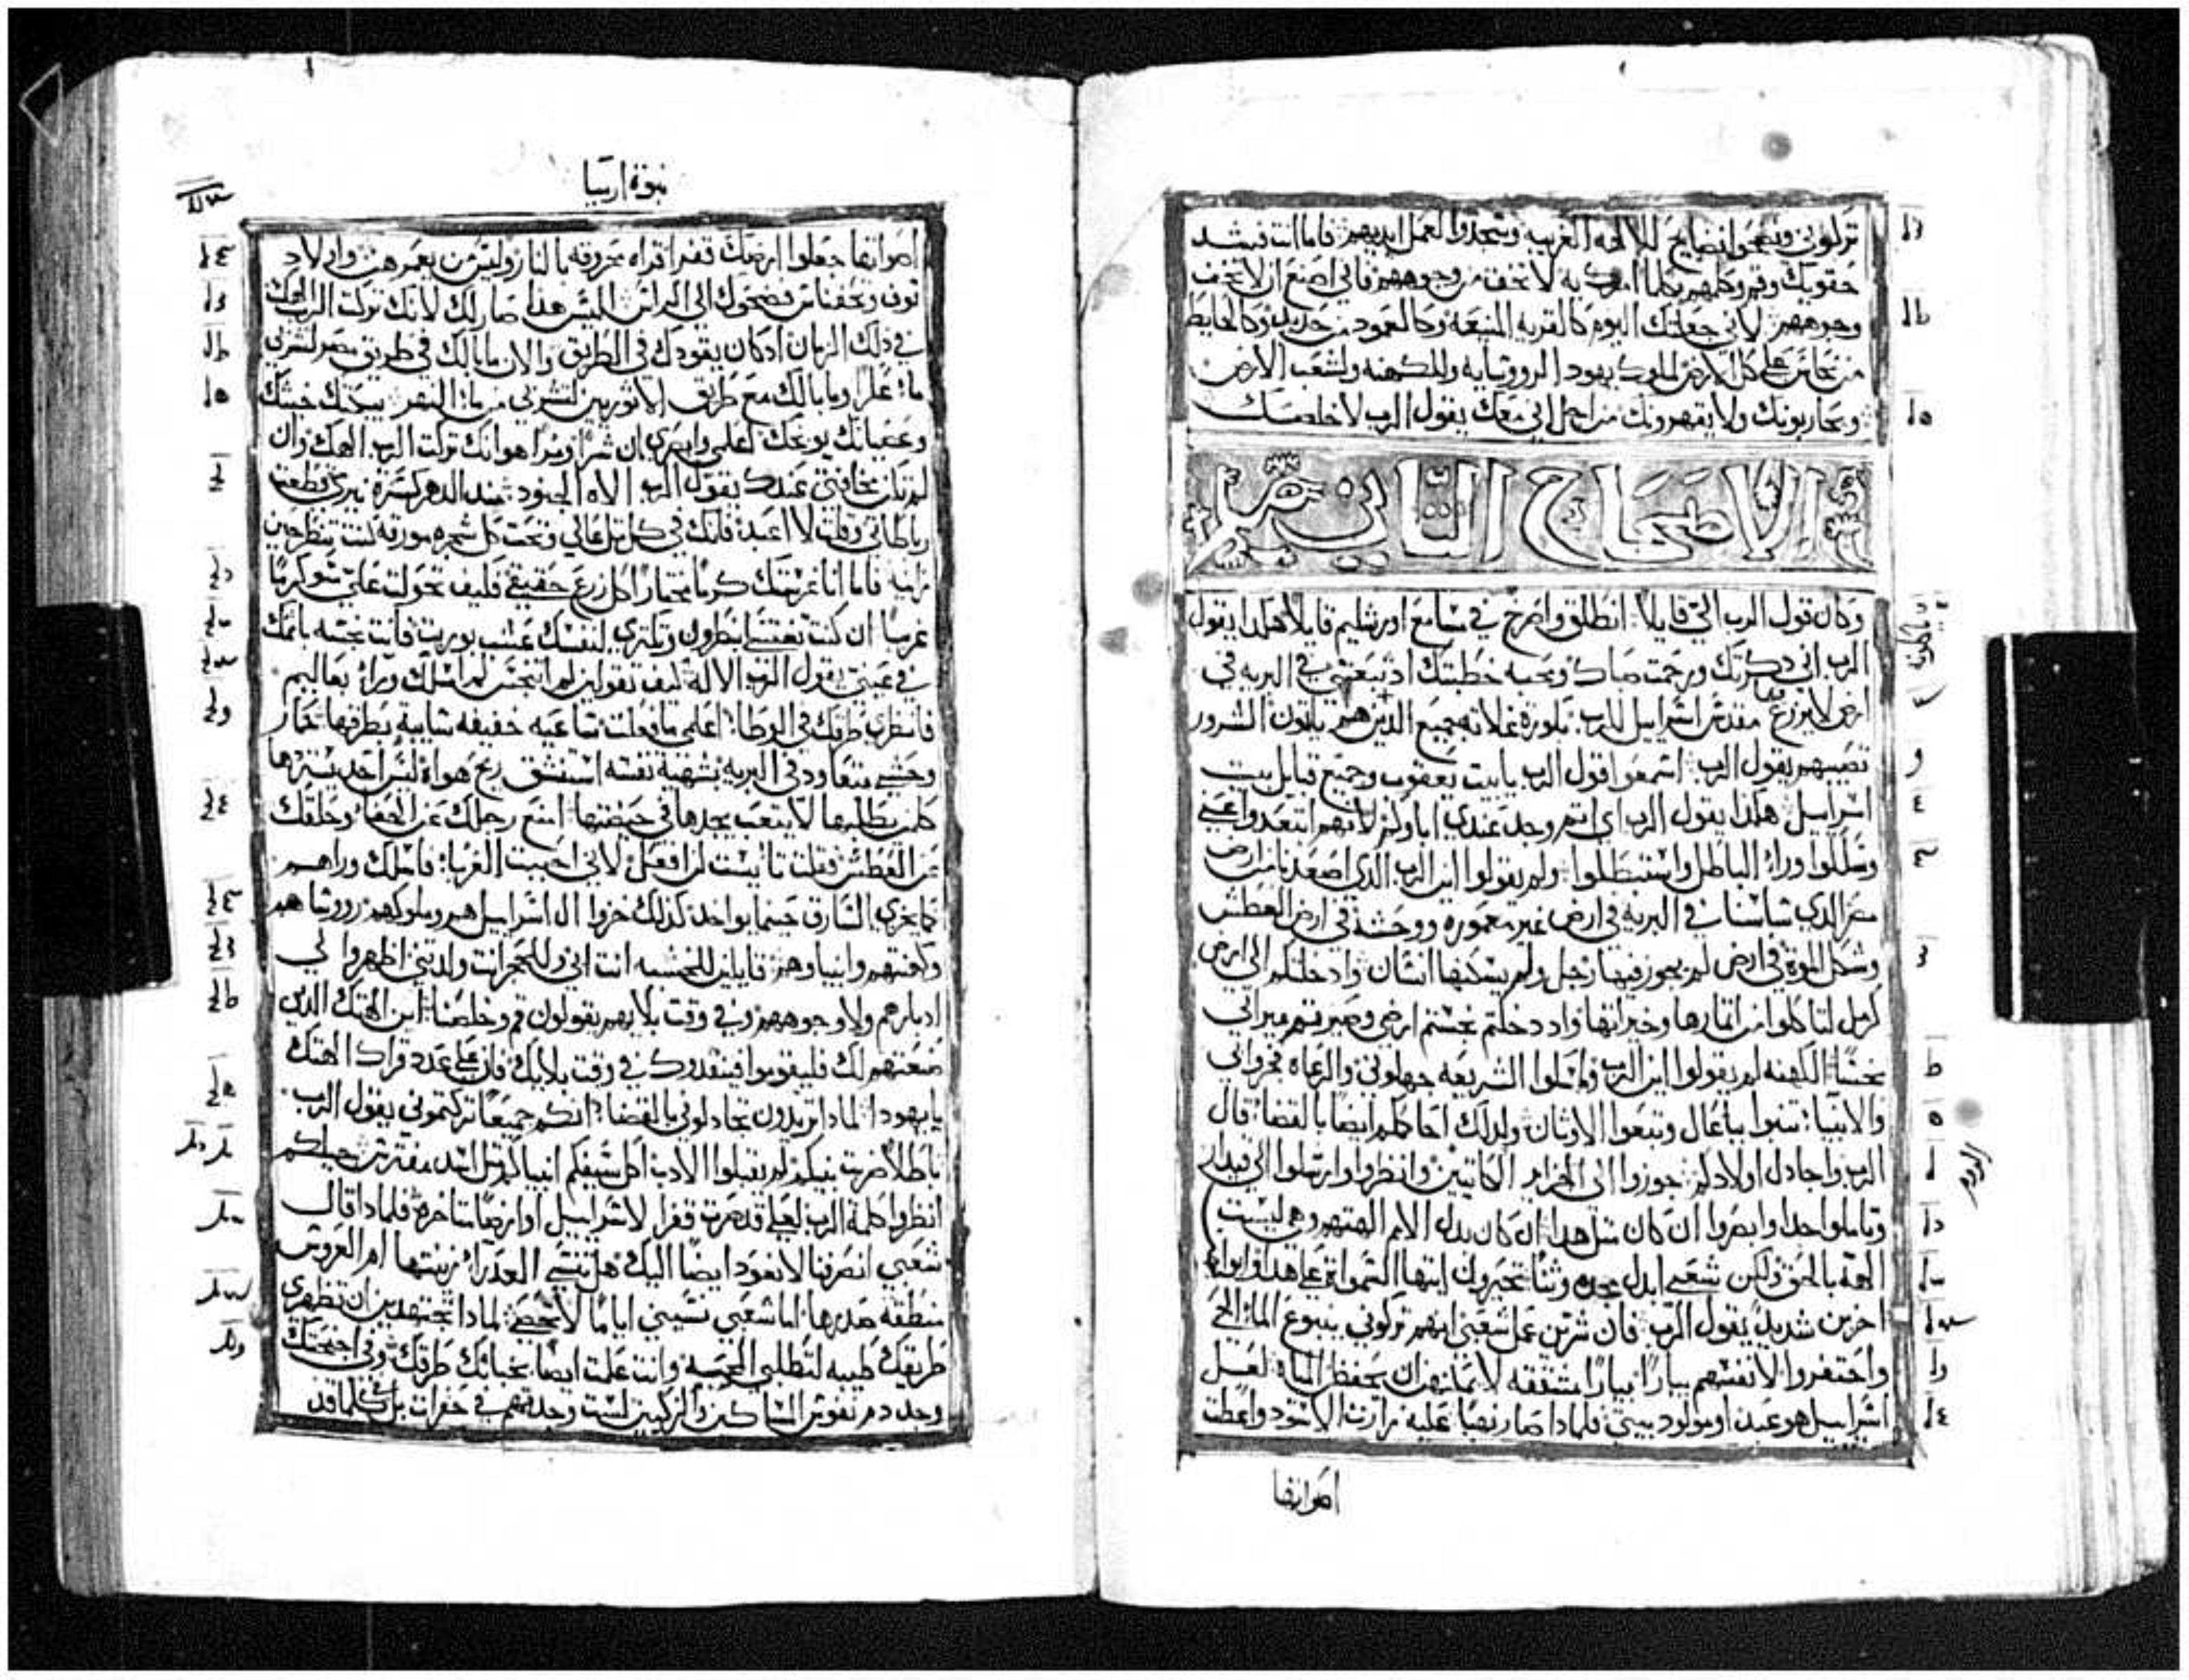 تركوني وضحوا ضحايا للالهه الغريبه وسجدوا لعمل ايديهم فاما انت فشد
حقويك وقم وكلمهم بكلما امرك به لا تخف من وجوههم فاني اصنع ان لا تخف
وجوههم لاني جعلتك اليوم كالقريه المنيعه وكالعمود من حديد وكالحايط
من نحاس على كل الارض لملوك يهودا لرووسايه وللكهنه ولشعب الارض
ويحاربونك ولا يقهرونك من اجل اني معك يقول الرب لاخلصك
الاصحاح الثاني
وكان قول الرب الي قايلا انطلق واصرخ في مسامع اورشليم قايلا هكذا يقول
الرب اني ذكرتك ورحمت صباك ومحبه خطبتك اذ تبعتني في البريه في
ارض لا تزرع مقدس اسراييل للرب بكورة غلاته جميع الذين ياكلون الشرور
تصيبهم يقول الرب اسمعوا قول الرب يا بيت يعقوب وجميع قبايل بيت
اسراييل هكذا يقول الرب اي اثم وجد عندي اباوكم لانهم ابتعدوا عني
وسلكوا وراء الباطل واستبطلوا ولم يقولوا اين الرب الذي اصعدنا من ارض
مصر الذي ساسنا في البريه في ارض غير معموره ووحشة في ارض العطش
وشكل الموت في ارض لم يجوز فيها رجل ولم يسكنها انسان وادخلتكم الى ارض
كرمل لتاكلوا من اثمارها وخيراتها واذ دخلتم نجستم ارضي وصيرتم ميراثي
نجسا الكهنه لم يقولوا اين الرب وماسكوا الشريعه جهلوني والرعاه فجرو ابي
والانبيا تنبوا بباعال وتبعوا الاوثان ولذلك احاكمكم ايضا بالقضا قال
الرب واجادل اولادكم جوزوا الى الجزاير الكاتيين وانظروا وارسلوا الى قيدار
وتاملوا جدا وابصروا ان كان مثل هذا ان كان بدل الامم الهتهم وهي ليست
الهه بالحق ولكن شعبي ابدل مجده وثنا تحيروا ايتها السموات على هذا وابوابه
احزن شديدا يقول الرب فان شرين عمل شعبي انهم تركوني ينبوع الماء الحي
واحتفروا لانفسهم بيارا بيارا مشققه لا يمكنهن ان يحفظن المياه لعل
اسراييل هو عبد او مولود بيتي فلماذا صار نهبا عليه زارت الاسود واعطت
اصواتها
نبوة ارميا
اصواتها جعلوا ارضك قفرا قراه محروقه بالنار وليس من يعمرهن واولاد
نوف وتحفناس فضحوك الى الراس اليس هذا صار لك لانك تركت الرب الهك
في ذلك الزمان اذ كان يقودك في الطريق والان ما بالك في طريق مصر لتشربي
ماء عكرا وما بالك مع طريق الاثوريين لتشربي من ماء النهر يبكتك خبثك
وعصيانك يوبخك اعلمي وابصري ان شرا ومرا هو انك تركت الرب الهك وان
لم تكن مخافتي عندك يقول الرب الاه الجنود منذ الدهر كسرت نيرك وقطعت
رباطاتي وقلت لا اعبد فانك في كل تل عالي وتحت كل شجره مورقه كنت تنطرحين
زانيه فاما انا غرستك كرما مختارا كل زرع حقيقي فكيف تحولت علي شوكرما
غريبا ان كنت تغتسلي بنطرون وتكثري لنفسك عشب بوريت فانت نجسه باثمك
في عيني يقول الرب الاله كيف تقولين لم اتنجس لم اسلك وراء بعاليم
فانظري طرقك في الوطا اعلمي ما فعلت ساعيه خفيفه سايبة بطرقها حمار
وحشي متعاود في البريه بشهية نفسه استنشق ريح هواه ليس احد يردها
كلمن يطلبها لا يتعب يجدها في حيضتها امنعي رجلك عن الحفاء وحلقك
عن العطش فقلت تايست لن افعل لاني احببت الغربا فاسلك وراهم
كما يخزي السارق حينما يواخذ كذلك خزوا ال اسراييل هم وملوكهم رووساهم
وكهنتهم وانبياوهم قايلين للخشبه انت ابي وللحجر انت ولدتني اظهروا لي
ادبارهم ولا وجوههم وفي وقت بلايهم يقولون قم وخلصنا اين الهتك الذين
صنعتهم لك فليقوموا فينقذوك في وقت بلايك فان على عدد قراك الهتك
يا يهودا لماذا تريدون تجادلوني بالقضا انكم جميعا تركتموني يقول الرب
باطلا ضربت بنيكم لم تقبلوا الادب اكل سيفكم انبياكم مثل اسد مفترس جيلكم
انظروا كلمة الرب لعلي قد صرت قفرا لاسراييل او ارضا متاخرة فلماذا قال
شعبي انصرفنا لا نعود ايضا اليك هل تنسي العذراء زينتها ام العروس
منطقه صدرها اما شعبي نسيني اياما لا تحصى لماذا تجتهدين ان تظهري
طريقك طيبه لتطلبي المحبه وانت علمت ايضا بخباثتك طرقك وفي اجنحتك
وجد دم نفوس المساكين والزكيين لست وجدتهم في حفرات بل كلما قد